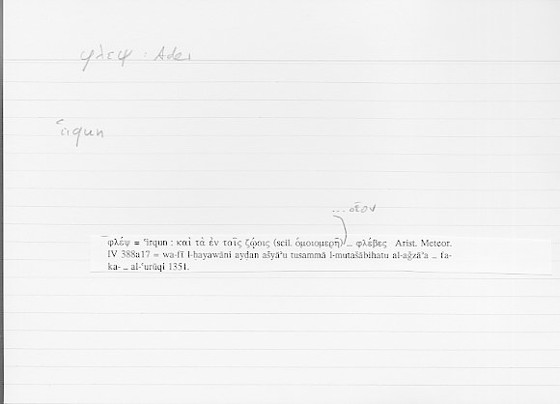 φλεψ : Ader
ʿirqun
... οἷον
φλέψ = ʿirqun : καὶ τὰ ἐν τοῖς ζῴοις (scil. ὁμοιομερῆ) _ φλέβες Arist. Meteor.
IV 388a17 = wa-fī l-ḥayawāni ayḍan ašyāʾu tusammā l-mutašābihatu al-aǧzāʾa _ fa-
ka- _ al-ʿurūqi 1351.